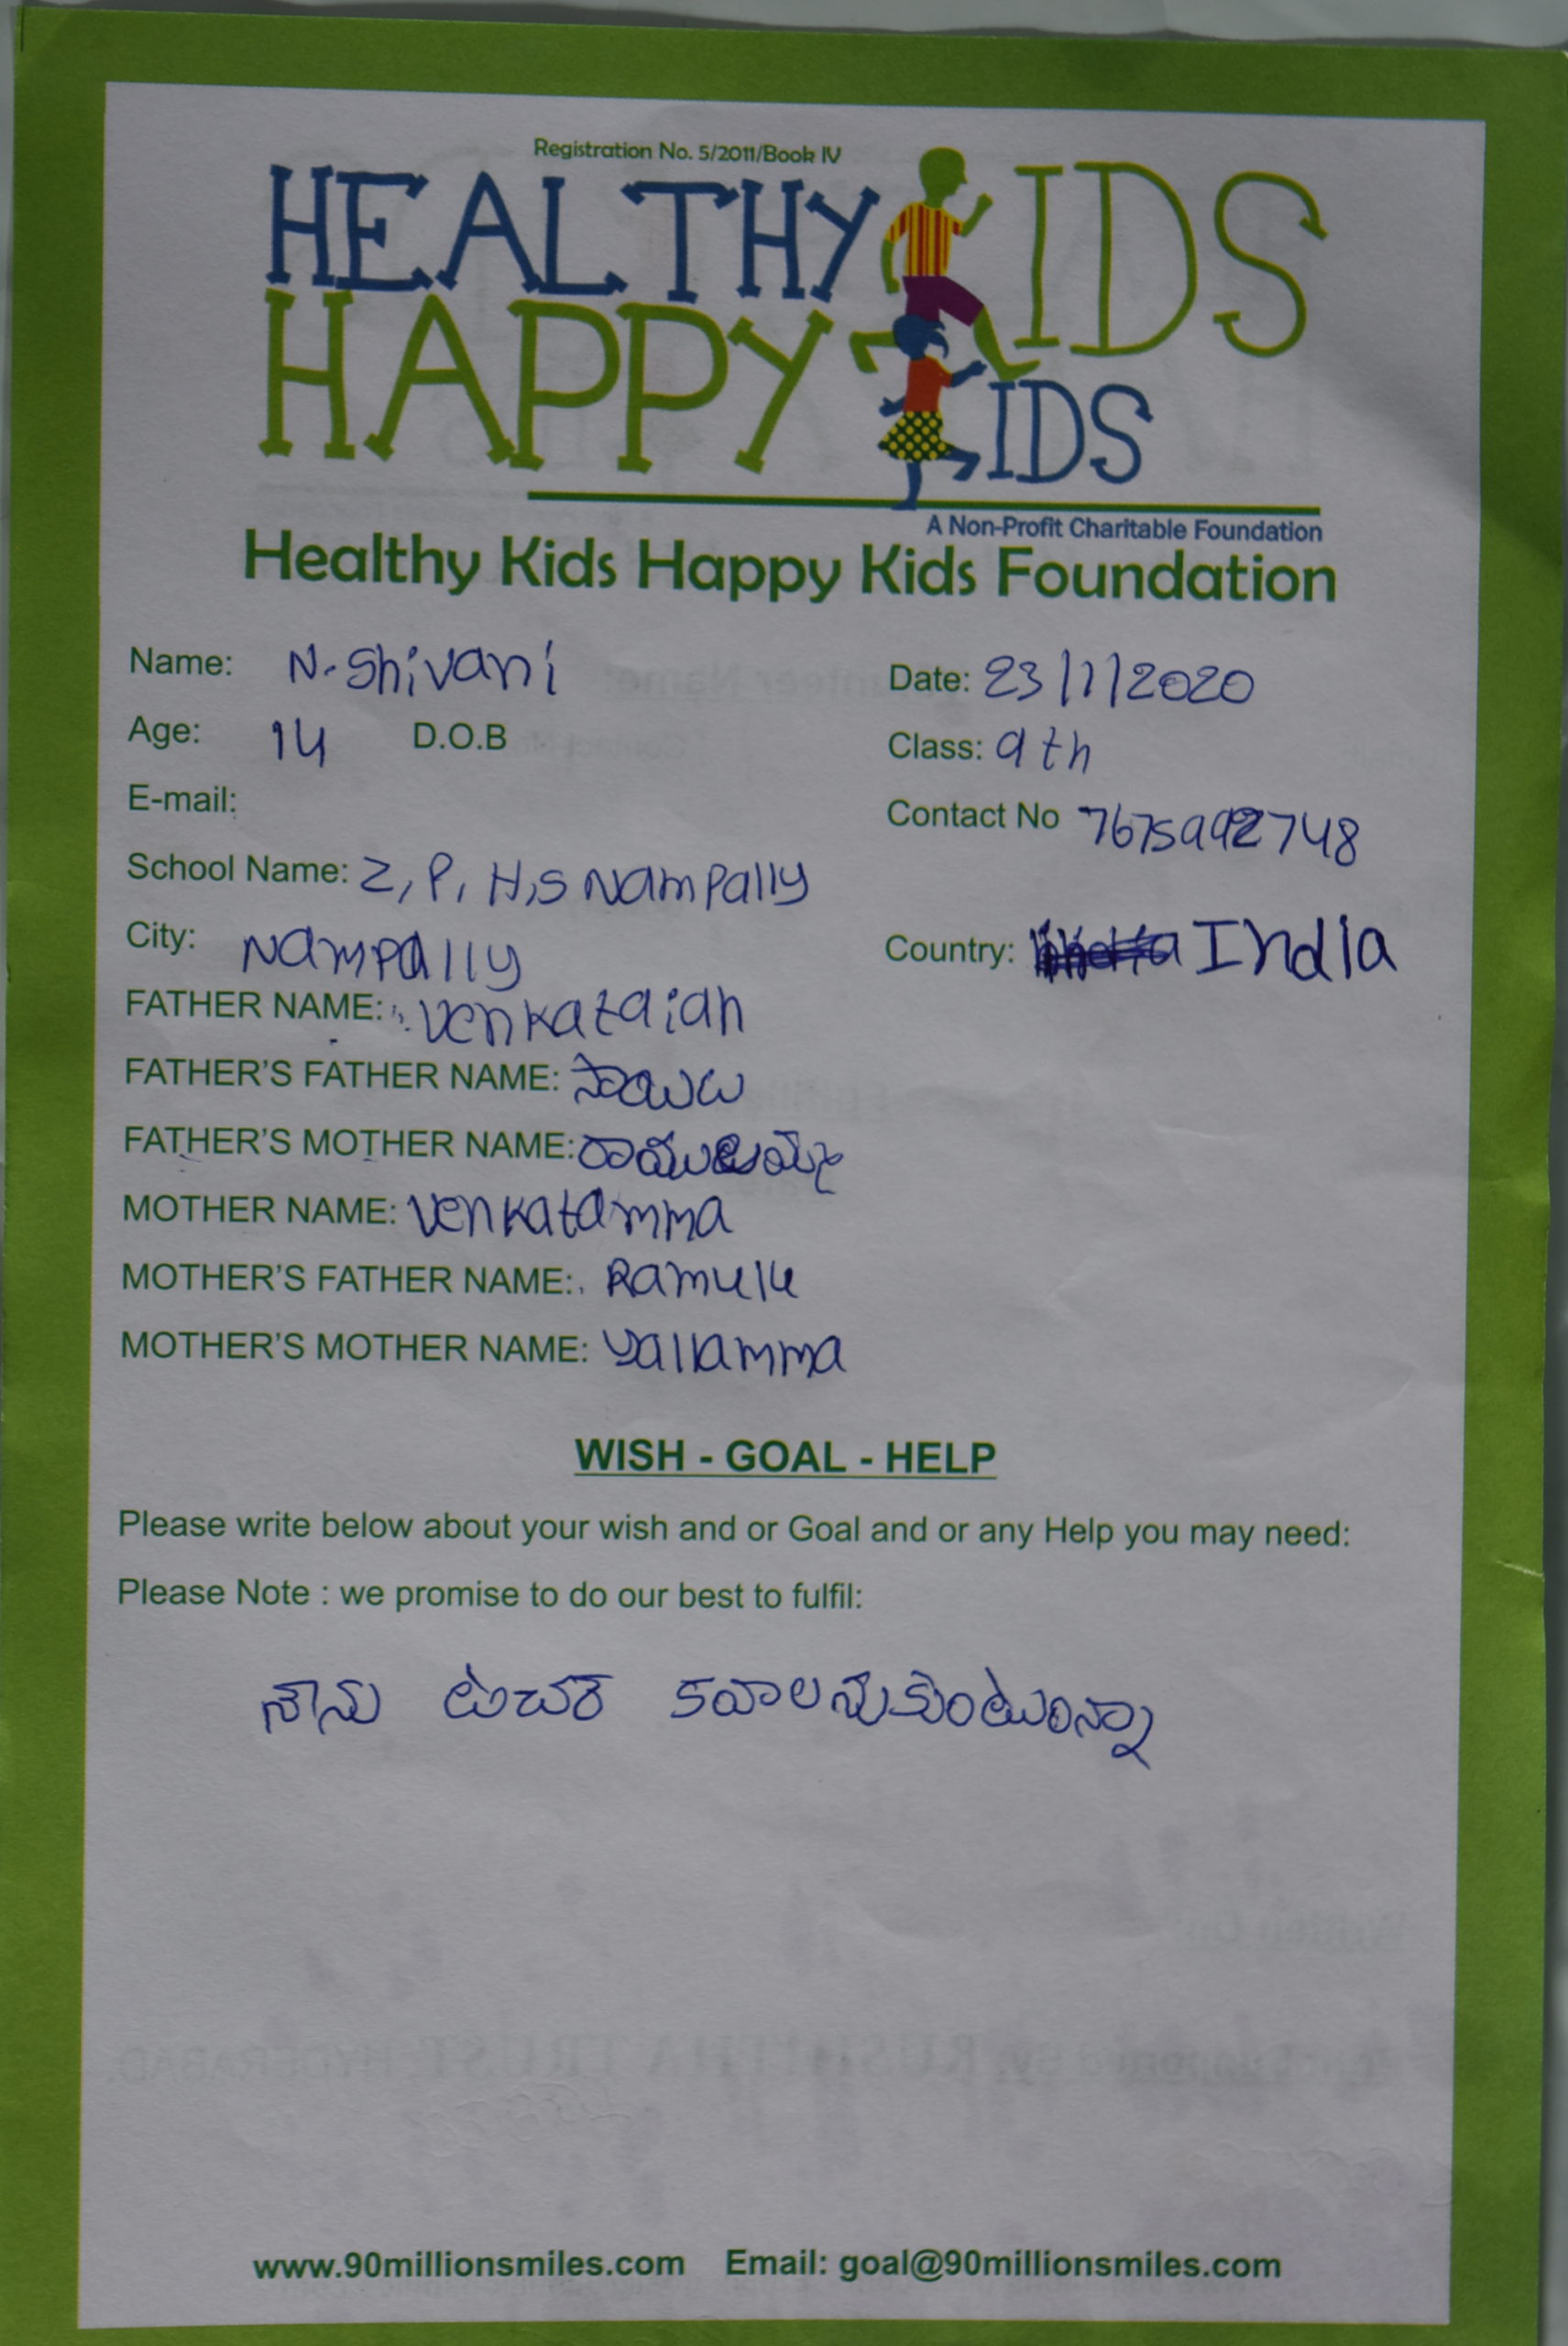 Registration No. 5/2011/Book IV
HEALTHY KIDS
HAPPY KIDS
A Non-Profit Charitable Foundation
Healthy Kids Happy Kids Foundation
Name: N. Shivani Date: 23/1/2020
Age: 14 D.O.B Class: 9th
E-mail: Contact No 7675992748
School Name: Z, P, H,S Nampally
City: Nampally Country: India
FATHER NAME: Venkataiah
FATHER'S FATHER NAME: సాయిలు
FATHER'S MOTHER NAME: రాములమ్మ
MOTHER NAME: Venkatamma
MOTHER'S FATHER NAME: Ramulu
MOTHER'S MOTHER NAME: Yallamma
WISH - GOAL - HELP
Please write below about your wish and or Goal and or any Help you may need:
Please Note : we promise to do our best to fulfil:
నాను టీచర్ కవాలనుకుంటున్నా
www.90millionsmiles.com Email: goal@90millionsmiles.com